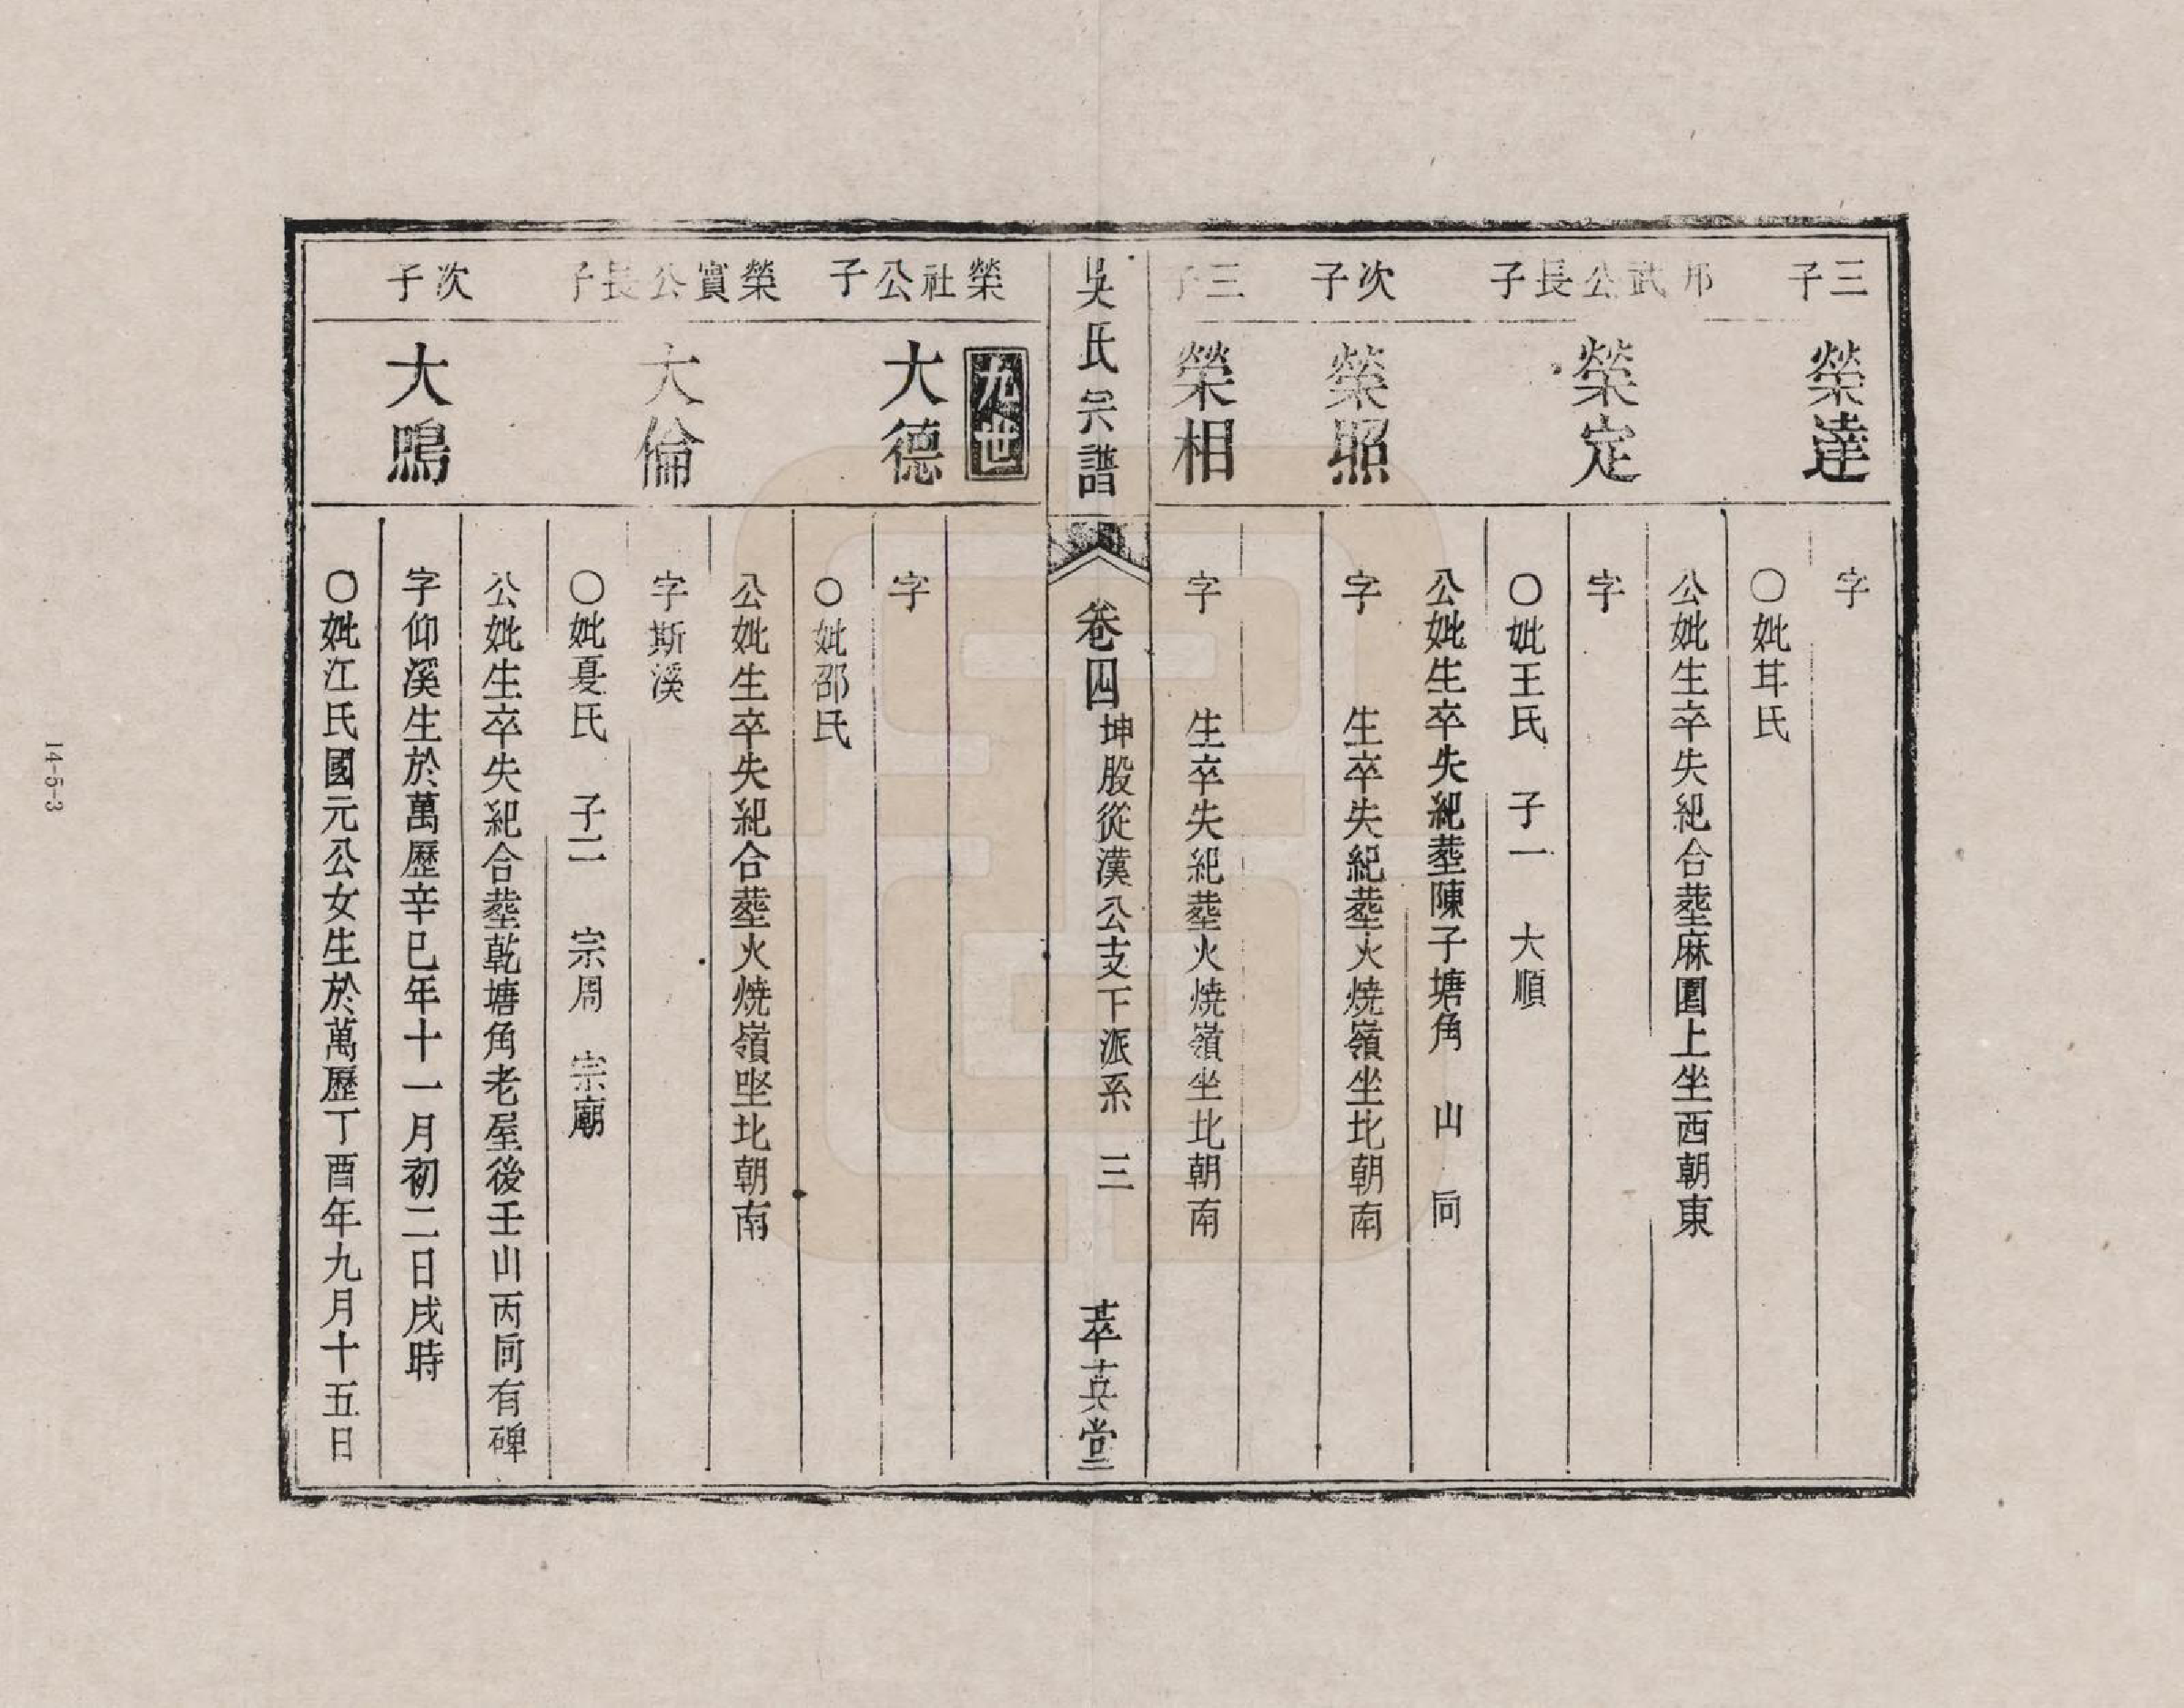 三子
榮達
字
〇妣耳氏
公妣生卒失紀合塟麻園上坐西朝東
邦武公長子
榮定
字
〇妣王氏　子一　大順
公妣生卒失紀塟陳子塘角　山　向
次子
榮照
字　　生卒失紀塟火燒嶺坐北朝南
三子
榮相
字　　生卒失紀塟火燒嶺坐北朝南
吳氏宗譜
卷四
坤股從漢公支下派系　三
萃英堂
九世
榮社公子
大德
字
〇妣邵氏
公妣生卒失紀合塟火燒嶺坐北朝南
榮實公長子
大倫
字斯溪
〇妣夏氏　子二　宗周　宗廟
公妣生卒失紀合塟乾塘角老屋後壬山丙向有碑
次子
大鵾
字仰溪生於萬歷辛巳年十一月初二日戌時
〇妣江氏國元公女生於萬歷丁酉年九月十五日
14-5-3